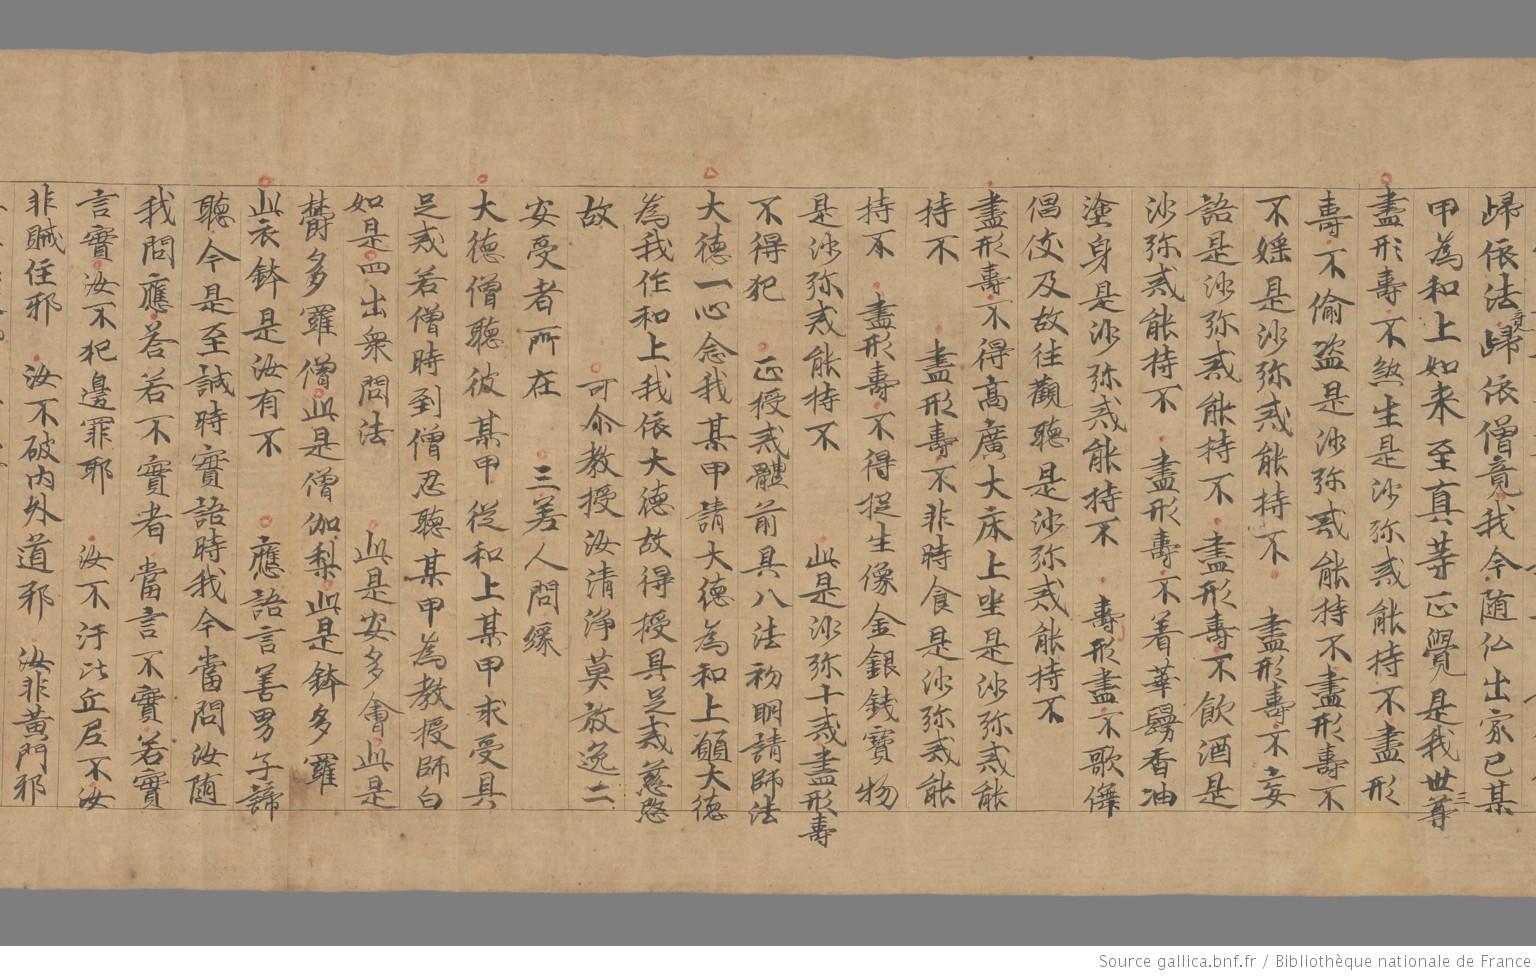 歸依法竟歸依僧竟我今随仏出家已某
甲為和上如来至真等正覺是我世尊三
盡形壽不煞生是沙弥戒能持不盡形
壽不偷盜是沙弥戒能持不盡形壽不
不婬是沙弥戒能持不 盡形壽不妄
語是沙弥戒能持不 盡形壽不飲酒是
沙弥戒能持不 盡形壽不着華鬘香油
塗身是沙弥戒能持不 壽形盡不歌儛
倡伎及故往觀聽是沙弥戒能持不
盡形壽不得高廣大床上坐是沙弥戒能
持不 盡形壽不非時食是沙弥戒能
持不 盡形壽不得捉生像金銀錢寶物
是沙弥戒能持不 此是沙弥十戒盡形壽
不得犯 正授戒體前具八法初明請師法
大德一心念我某甲請大德為和上願大德
為我作和上我依大德故得授具足戒慈愍
故 可尒教授汝清淨莫放逸二
安受者所在 三差人問緣
大德僧聽彼某甲從和上某甲求受具
足戒若僧時到僧忍聽某甲為教授師白
如是四出衆問法 此是安多會此是
欝多羅僧此是僧伽梨此是鉢多羅
此衣鉢是汝有不 應語言善男子諦
聽今是至誠時實語時我今當問汝随
我問應荅若不實者當言不實若實
言實汝不犯邊罪耶 汝不汙比丘尼不汝
非賊住邪 汝不破内外道邪 汝非黃門邪
Source gallica.bnf.fr / Bibliothèque nationale de France